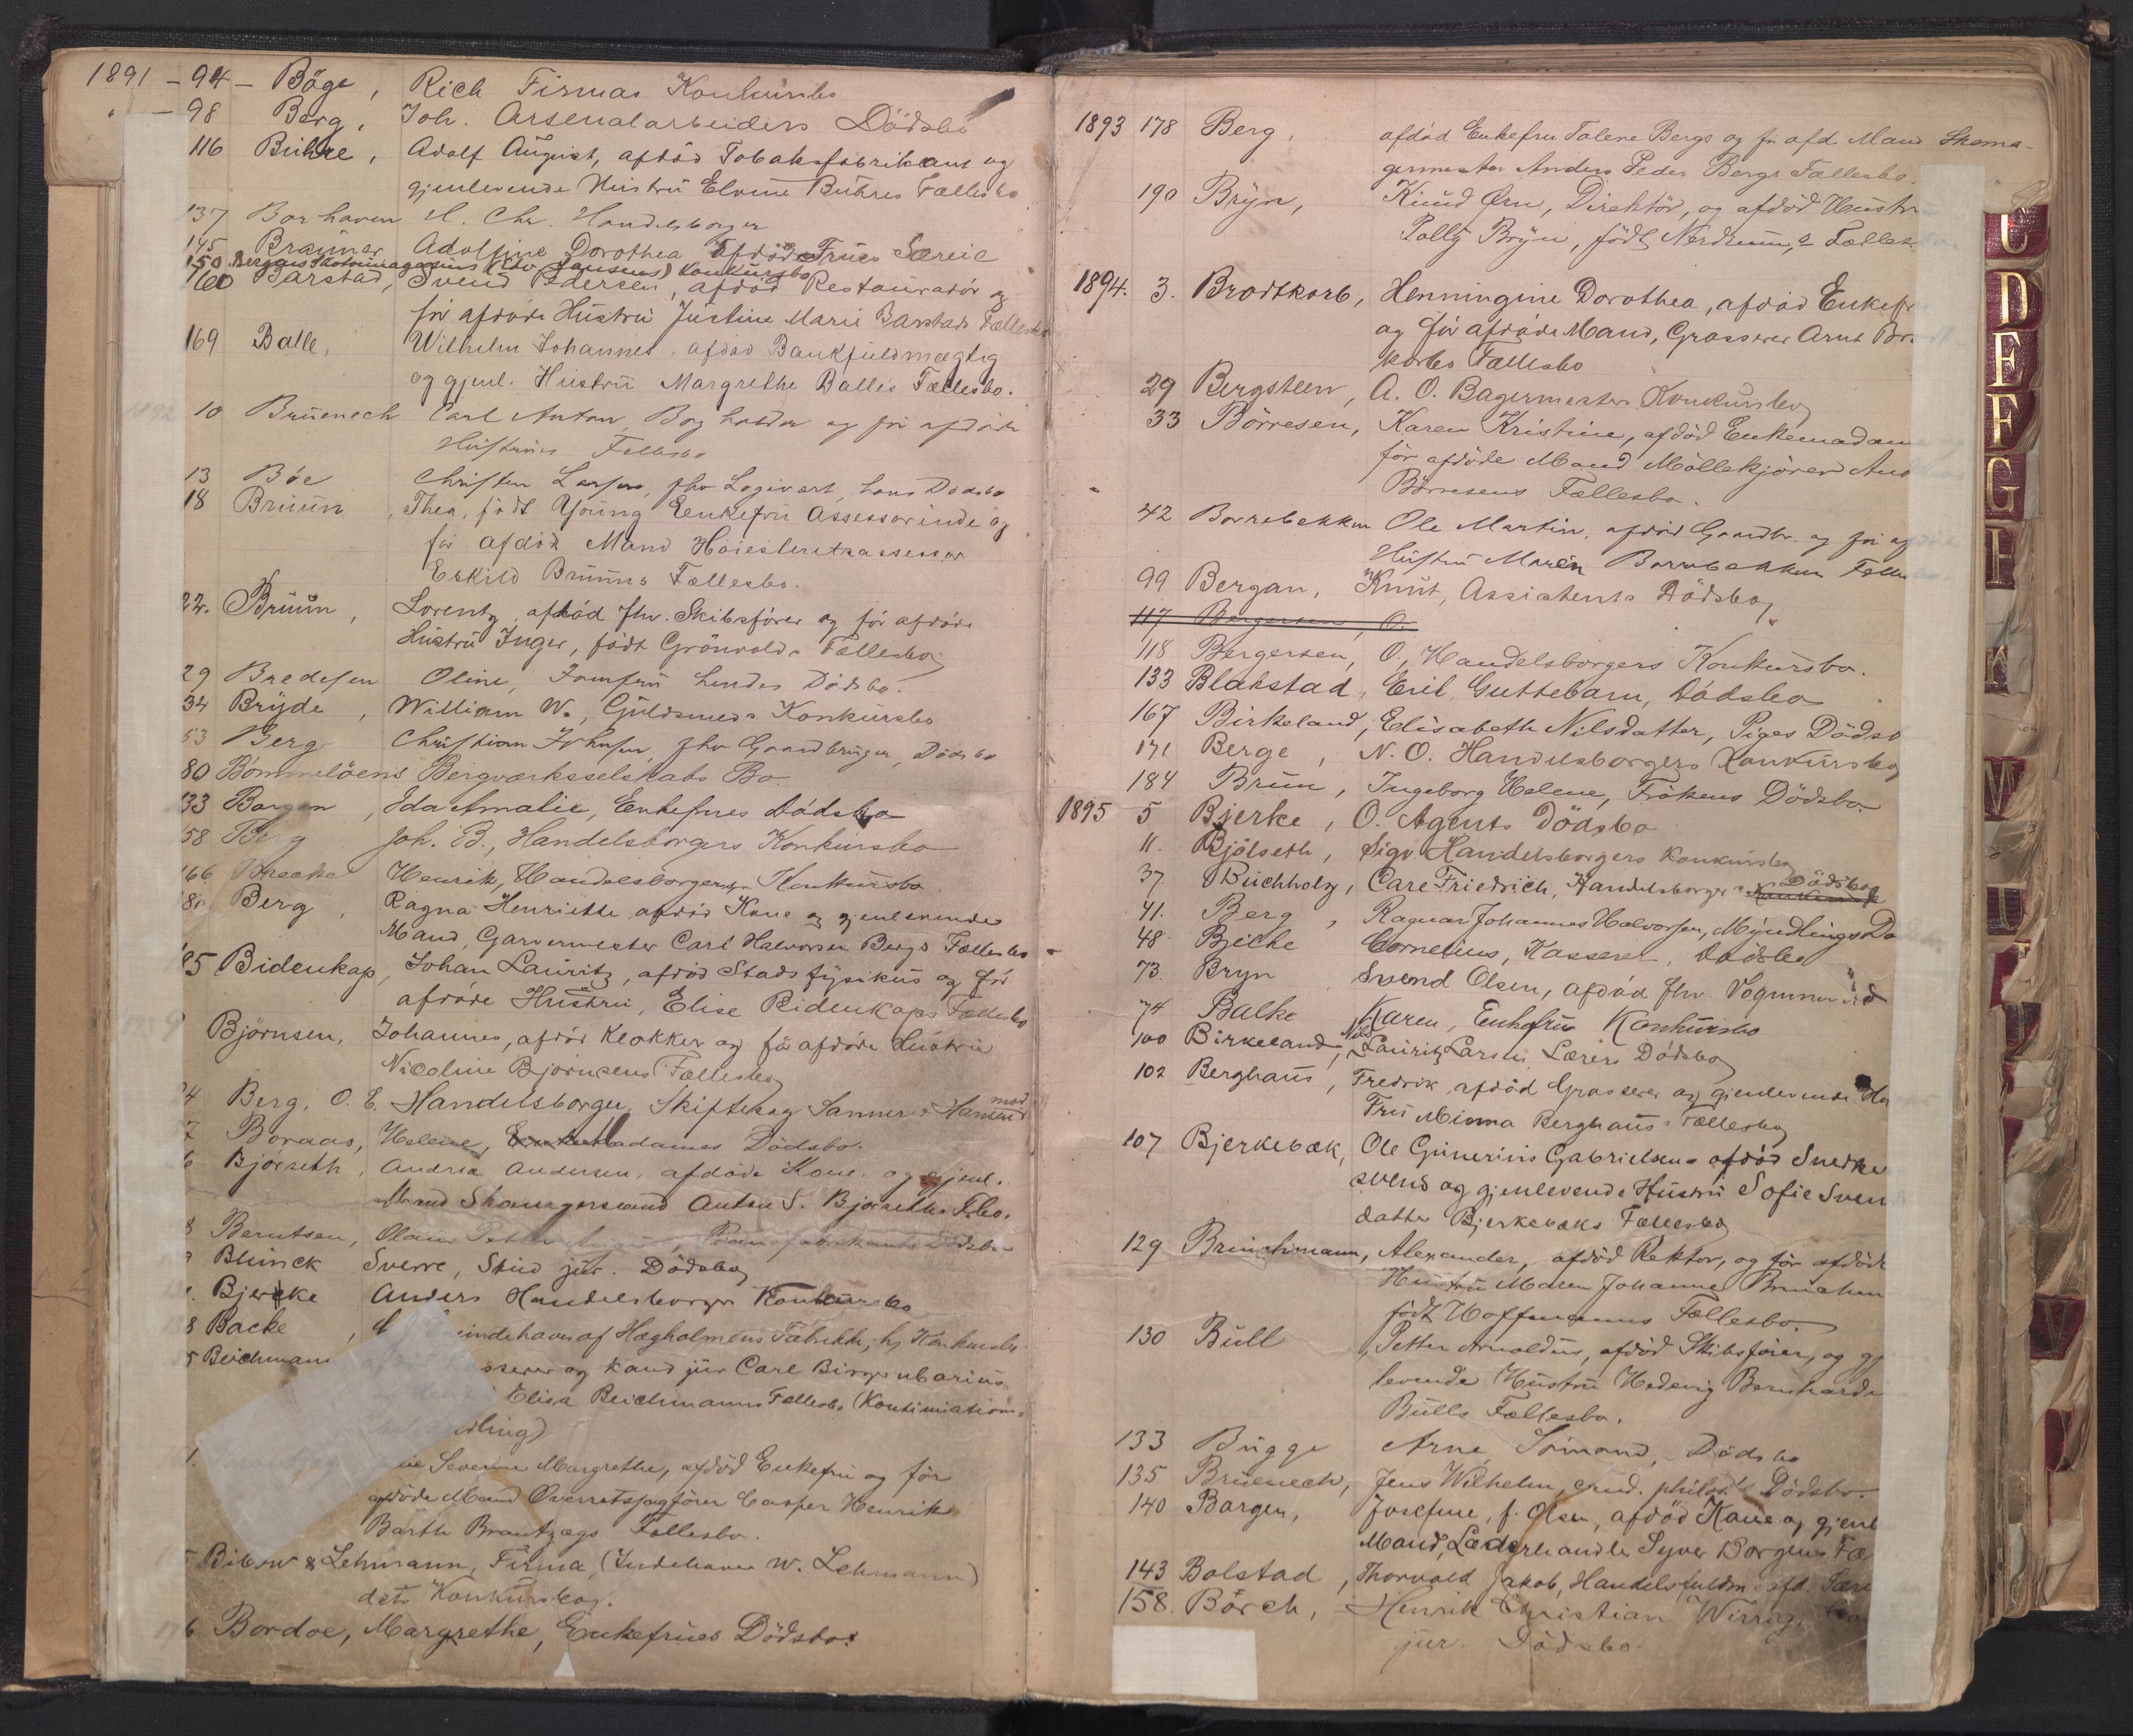 1891 - 94 - Böge, Rich Firmas Konkursbo
" - 98 Berg, Joh. Arsenalarbeiders Dödsbo
116 Bühre, Adolf August, afdöd Tobaksfabrikant og
gjenlevende Hustru Elvine Bühres Fællesbo
137 Borhaven H. Chr. Handelsborger
145 Braüner Adolfine Dorothea afdöd Frues Særeie
150 Bergens Skotöimagasins Konkursbo
160 Barstad, Svend Pedersen, afdöd Restauratör og
för afdöde Hustru Justine Marie Barstads Fællesbo
169 Balle, Wilhelm Johannes, afdöd Bankfuldmægtig
og gjenl. Hustru Margrethe Balles Fællesbo.
1892 10 Bruenech Carl Anton, Bogholder og för afdöde
Hustrues Fellesbo
13 Böe Christen Larsen, fhv Logivert, hans Dödsbo
18 Bruun, Thea, födt Young Enkefru Assessorinde og
för afdöd Mand Höiesteretsassessor
Eskild Bruuns Fællesbo.
22. Bruun, Lorentz, afdöd fhv. Skibsförer og för afdöde
Hustru Inger, födt Grönvolds Fællesbo
29 Bredesen Oline, Jomfru hendes Dödsbo.
34 Bryde, William W., Guldsmeds Konkursbo
53 Berg Christian Johnsen, fhv Gaardbruger, Dödsbo
80 Bömmelöens Bergværksselskabs Bo
133 Borgen, Ida Amalie, Enkefrues Dödsbo
58 Berg Joh. B., Handelsborgers Konkursbo
166 Brecke Henrik, Handelsborgers Konkursbo.
Berg, Ragna Henriette afdöd Kone og gjenlevende
Mand, Garvermester Carl Halvorsen Bergs Fællesbo
85 Bidenkap, Johan Lauritz, afdöd Stadsfysikus og för
afdöde Hustru, Elise Bidenkaps Fællesbo
Björnsen, Johannes, afdöd Klokker og för afdöde Hustru
Nicoline Björnsens Fællesbo
4 Berg, O. E. Handelsborger, Skiftesag Sanner mod Hansen
7 Boraas, Helene, Enkemadames Dödsbo.
6 Björseth, Andrea Andersen, afdöde Kone, og gjenl.
Mand Skomagersvend Anton S. Bjørseths F.bo.
8 Berntsen, Olaus Pianofabrikants Dödsbo
Blunck Sverre, Stud jur. Dödsbo
Bjercke Anders Handelsborger Konkursbo
8 Backe, indehaver af Hægholmens Fabrikk, Konkursbo
5 Beichmann og kand jur Carl
Elisa Beichmanns Fællesbo (Kontinuations-
dling)
Severine Margrethe, afdöd Enkefru og för
afdöde Mand Overretssagförer Casper Henrik
Barth Brantzægs Fællesbo.
5 Bibow & Lehmann, Firma, (Indehaver W. Lehmann)
dets Konkursbo.
6 Bordoe, Margrethe, Enkefrues Dödsbo
1893 178 Berg, afdöd Enkefru Talene Bergs og fr afd Mand Skoma-
germester Anders Peder Bergs Fællesbo.
190 Bryn, Knud Ørn, Direktör, og afdöd Hustru
Polly Bryn, födt Nerdrum,s Fælles
1894. 3. Brodtkorb, Henningine Dorothea, afdöd Enkefr
og för afdöde Mand, Grosserer Arnt Bro
korbs Fællesbo
29 Bergsteen, A. O. Bagermesters Konkursbo
33 Börresen, Karen Kristine, afdöd Enkemadam
för afdöde Mand Möllekjörer And
Börresens Fællesbo.
42 Borrebekken Ole Martin, afdöd Gaardbr. og för af
Hustru Maren Borrebekken Felle
99 Bergan, Knut, Assistents Dödsbo
117 Bergersen, O.
118 Bergersen, O., Handelsborgers Konkursbo.
133 Blakstad, Eril, Guttebarn, Dödsbo
167 Birkeland, Elisabeth Nilsdatter, Piges Dödsb
171 Berge, N. O. Handelsborgers Konkursbo
184 Brun, Ingeborg Helene, Frökens Dödsbo.
1895 5 Bjerke, O. Agents Dödsbo
11. Bjölseth, Sigv. Handelsborgers Konkursbo
37 Buchholz, Carl Friedrich, Handelsborgers Dödsbo
41. Berg, Ragnar Johannes Halvorsen, Myndlings Dø
48 Bjelke Cornelius, Kasserer, Dödsbo
73. Bryn Svend Olsen, afdöd fhv. Vognmand
74 Balke Karen, Enkefru Konkursbo
100 Birkeland, Nils Lauritz Larsen, Lærers Dödsbo
102 Berghaus, Fredrik, afdöd Grosserer og gjenlevende Hu
Fru Minna Berghaus Fællesbo
107 Bjerkebæk, Ole Gunerius Gabrielsen afdöd Snedker
svend og gjenlevende Hustru Sofie Sven
datter Bjerkebæks Fællesbo
129 Brinchmann, Alexander, afdöd Rektor, og för afdöde
Hustru Maren Johanne Brinchm
födt Hoffmanns Fællesbo.
130 Bull, Petter Arnoldus, afdöd Skibsförer, og gj
levende Hustru Hedevig Bernharde
Bulls Fællesbo.
133 Bugge Arne, Sömand, Dödsbo
135 Bruenech, Jens Wilhelm, cand. philos.s Dödsbo.
140 Borgen, Josefine, f. Olsen, afdöd Kone og gjenl
Mand, Læderhandler Syver Borgens Fæ
143 Bolstad, Thorvald Jakob, Handelsfuldm. afd. Sær
158. Börch, Henrik Christian
jur. Dödsbo
C
D
E
F
G
K
M
V